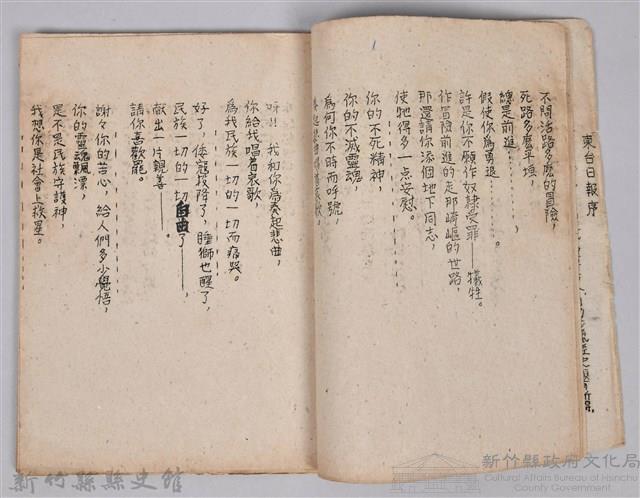 東台日報序
1
不問活路多麽的冒險,
死路多麽平坦
總是前進………,
假使你為勇退………
許是你不願作奴隸受罪——犧牲。
作冒險前進的走那崎嶇的世路,
那還請你添個地下同志,
使牠得多一点安慰。
你的不死精神,
你的不滅靈魂,
為何你不時而呼號,
呀!! 我和你為奏起悲曲,
你給我唱着哀歌,
為我民族一切的一切而痛哭。
好了,倭寇投降了,睡獅也醒了,
民族一切的一切自由了——
献出一片親善——
請你喜歡罷。
謝々你的苦心,給人們多少覺悟,
你的靈魂飄漂,
是不是民族守護神,
我想你是社會上救星。
新竹縣縣史館
新竹縣政府文化局
Cultural Affairs Bureau of Hsinchu
County Government